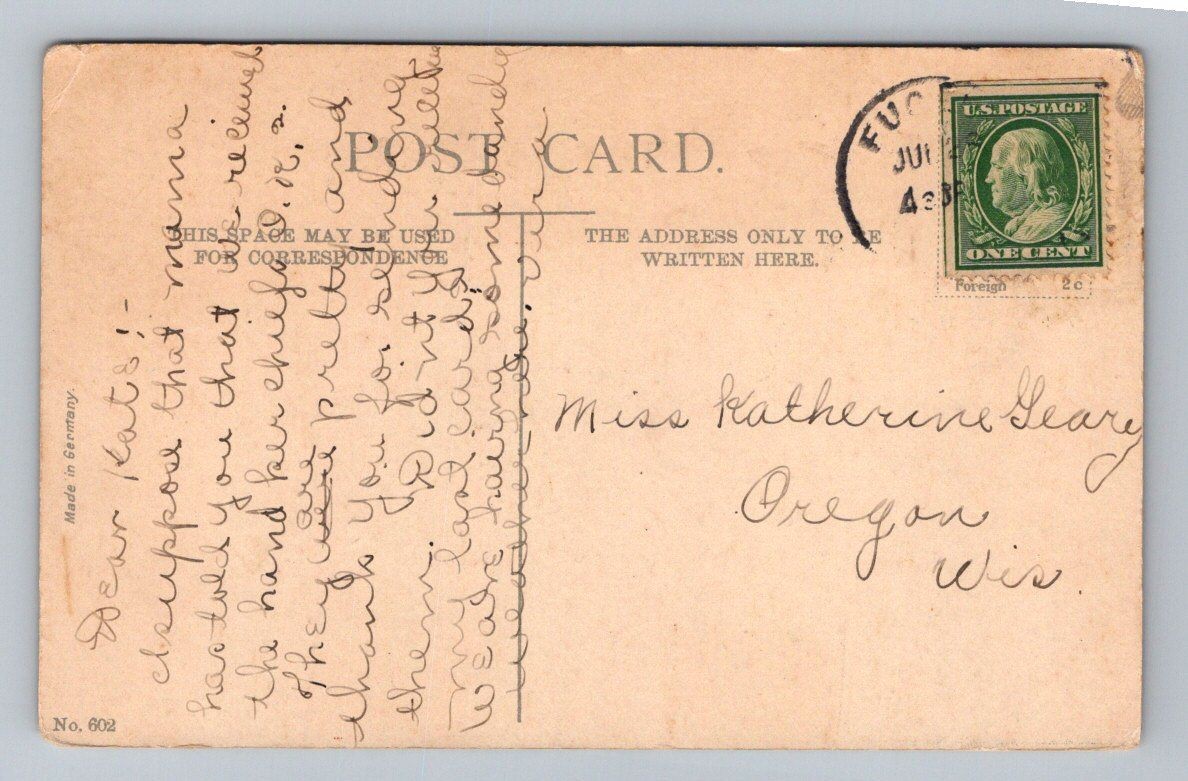 POST CARD.
THIS SPACE MAY BE USED
FOR CORRESPONDENCE
THE ADDRESS ONLY TO BE
WRITTEN HERE.
JUL 2
4
U.S. POSTAGE
ONE CENT
Foreign 2c
Made in Germany.
No. 602
Dear Kate:-
I suppose that mama
has told you that we received
the hand kerchiefs O.K.
They are were pretty and
thank you for sending
them. Didn't you receive
my last card?
We are having some dandy
weather here. Vera
Miss Katherine Geary
Oregon
Wis